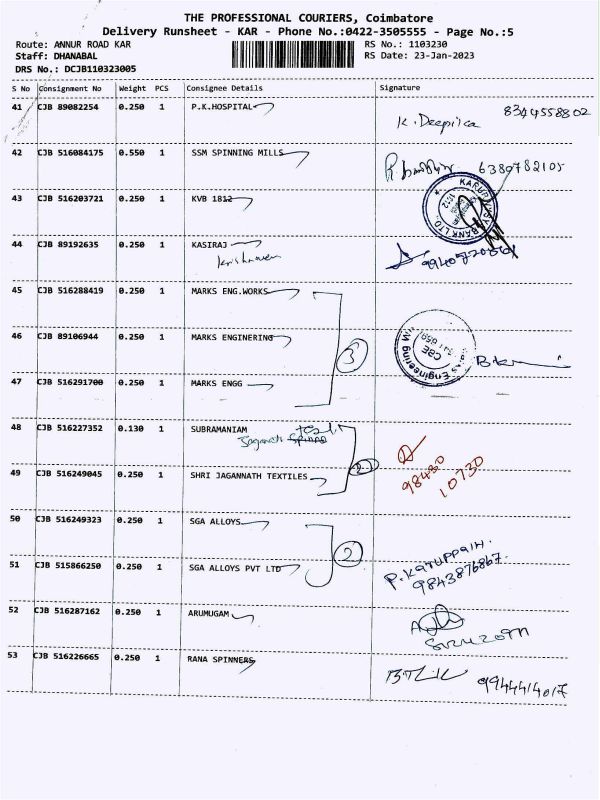 THE PROFESSIONAL COURIERS, Coimbatore
Delivery Runsheet - KAR - Phone No.:0422-3505555 - Page No.:5
Route: ANNUR ROAD KAR RS No.: 1103230
Staff: DHANABAL RS Date: 23-Jan-2023
DRS No.: DCJB110323005
S No Consignment No Weight PCS Consignee Details Signature
41 CJB 89082254 0.250 1 P.K.HOSPITAL K. Deepika 8344558802
42 CJB 516084175 0.550 1 SSM SPINNING MILLS 6380782105
43 CJB 516203721 0.250 1 KVB 1812 KARUR VYSYA BANK LTD 1812
44 CJB 89192635 0.250 1 KASIRAJ
45 CJB 516288419 0.250 1 MARKS ENG.WORKS
46 CJB 89106944 0.250 1 MARKS ENGINERING 3 Engineering CBE
47 CJB 516291700 0.250 1 MARKS ENGG
48 CJB 516227352 0.130 1 SUBRAMANIAM
Jaganath
98430
49 CJB 516249045 0.250 1 SHRI JAGANNATH TEXTILES 2 10730
50 CJB 516249323 0.250 1 SGA ALLOYS
2 P. KARUPPAIH.
51 CJB 515866250 0.250 1 SGA ALLOYS PVT LTD 9843876867
52 CJB 516287162 0.250 1 ARUMUGAM
53 CJB 516226665 0.250 1 RANA SPINNERS 9944414017